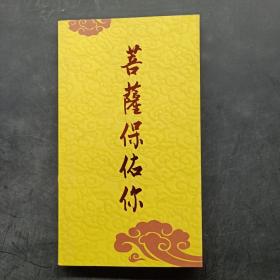 菩薩保佑你